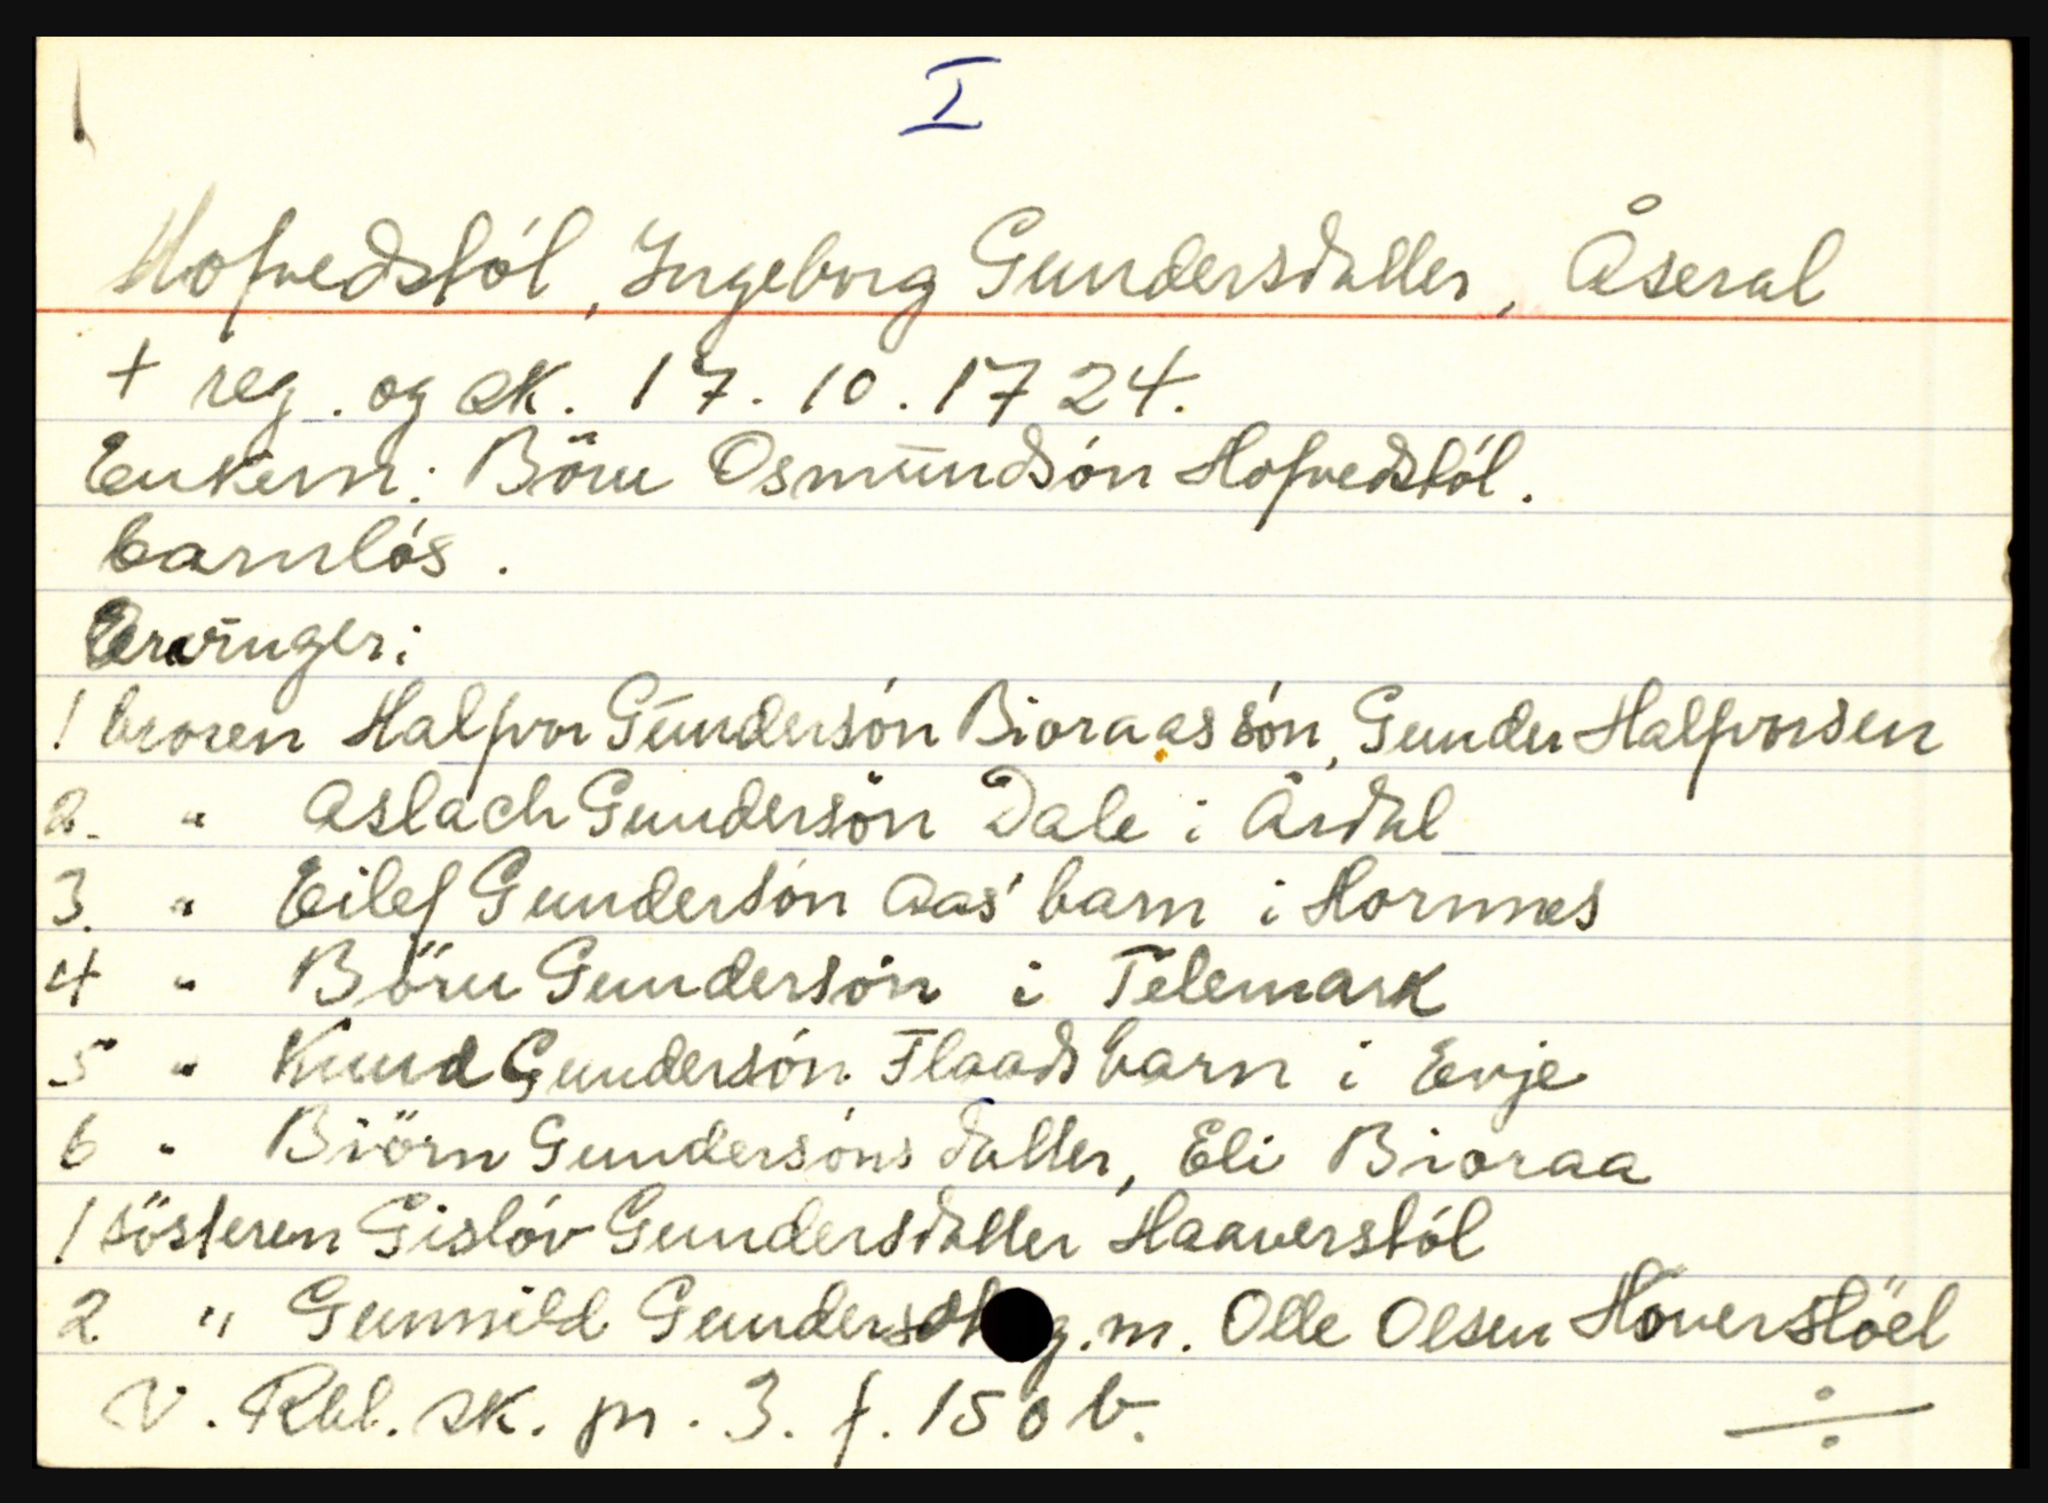 I
Hofvedstøl, Ingeborg Gundersdatter, Åseral
+ reg. og sk. 17. 10. 1724.
Enkem: Börn Osmundsón Hofvedstól.
barnlós.
Arvinger:
1 broren Halfvor Gundersón Bioraas són, Gunder Halfvorsen
2. " Aslach Gundersön Dale i Årdal
3. " Eilef Gundersón Aas' barn i Hornnes
4 " Börn Gundersón i Telemark
5 " Knud Gundersón Flaads barn i Evje
6 " Biörn Gundersóns datter, Eli Bioraa
1 sösteren Gislóv Gundersdatter Haaverstól
2 " Gunnild Gundersdt g.m. Olle Olsen Hoverstöel
V. Rbl. sk. pr. 3. f. 150 b.
÷